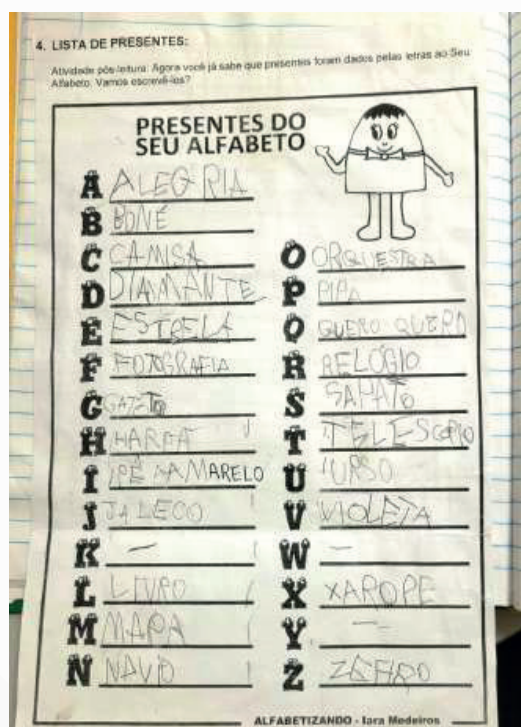 4. LISTA DE PRESENTES:
Atividade pós-leitura: Agora você já sabe que presentes foram dados pelas letras ao Seu
Alfabeto. Vamos escrevê-los?
PRESENTES DO
SEU ALFABETO
A ALEGRIA
B BONÉ
C CAMISA
D DIAMANTE
E ESTRELA
F FOTOGRAFIA
G
H HARPA
I IPÊ AMARELO
J JALECO
K -
L LIVRO
M MAPA
N NAVIO
O ORQUESTRA
P PIPA
Q QUERO QUERO
R RELÓGIO
S SAPATO
T TELESCOPIO
U URSO
V VIOLETA
W -
X XAROPE
Y -
Z
ALFABETIZANDO - Iara Medeiros